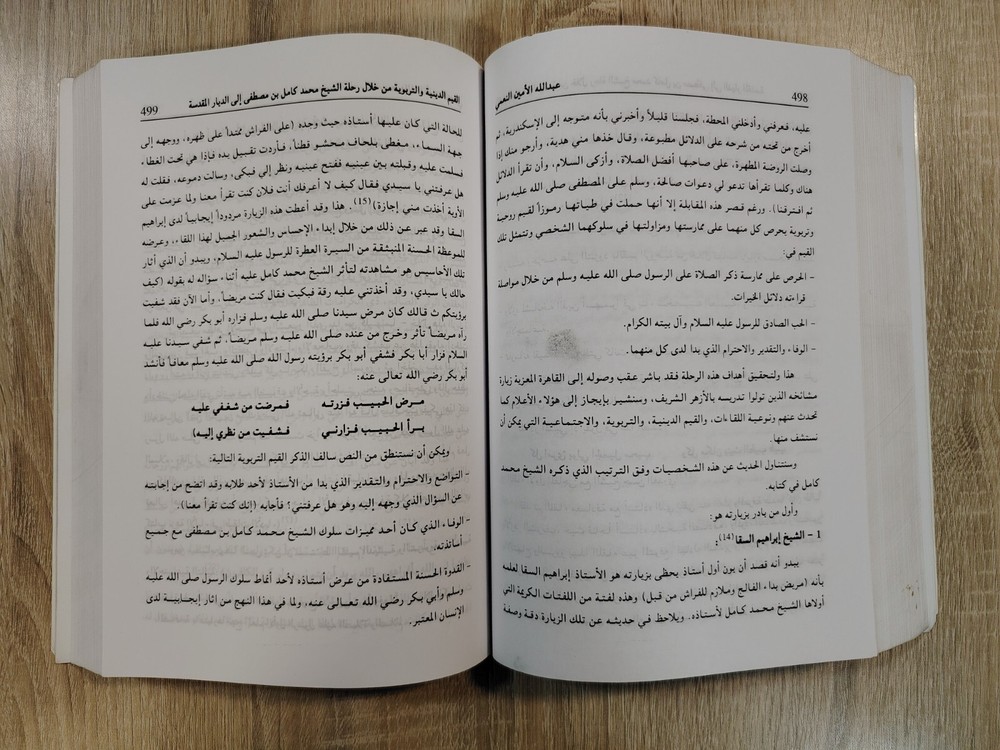 498
عبدالله الأمين النعمي
عليه، فعرفني وأدخلني المحطة، فجلسنا قليلاً وأخبرني بأنه متوجه إلى الإسكندرية، ثم
أخرج من تحته من شرحه على الدلائل مطبوعة، وقال خذها مني هدية، وأرجو منك إذا
وصلت الروضة المطهرة، على صاحبها أفضل الصلاة، وأزكى السلام، وأن تقرأ الدلائل
هناك وكلما تقرأها تدعو لي دعوات صالحة، وسلم على المصطفى صلى الله عليه وسلم
ثم افترقنا). ورغم قصر هذه المقابلة إلا أنها حملت في طياتها رموزاً لقيم روحية
وتربوية يحرص كل منهما على ممارستها ومزاولتها في سلوكهما الشخصي وتتمثل تلك
القيم في:
- الحرص على ممارسة ذكر الصلاة على الرسول صلى الله عليه وسلم من خلال مواصلة
قراءته دلائل الخيرات.
- الحب الصادق للرسول عليه السلام وآل بيته الكرام.
- الوفاء والتقدير والاحترام الذي بدا لدى كل منهما.
هذا ولتحقيق أهداف هذه الرحلة فقد باشر عقب وصوله إلى القاهرة المعزية زيارة
مشائخه الذين تولوا تدريسه بالأزهر الشريف، وسنشير بإيجاز إلى هؤلاء الأعلام كما
تحدث عنهم ونوعية اللقاءات، والقيم الدينية، والتربوية، والاجتماعية التي يمكن أن
نستشف منها.
وسنتناول الحديث عن هذه الشخصيات وفق الترتيب الذي ذكره الشيخ محمد
كامل في كتابه.
وأول من بادر بزيارته هو:
1 - الشيخ إبراهيم السقا (14):
يبدو أنه قصد أن يون أول أستاذ يحظى بزيارته هو الأستاذ إبراهيم السقا لعلمه
بأنه (مريض بداء الفالج وملازم للفراش من قبل) وهذه لفتة من اللفتات الكريمة التي
أولاها الشيخ محمد كامل لأستاذه. ويلاحظ في حديثه عن تلك الزيارة دقة وصفة
القيم الدينية والتربوية من خلال رحلة الشيخ محمد كامل بن مصطفى إلى الديار المقدسة
499
للحالة التي كان عليها أستاذه حيث وجده (على الفراش ممتداً على ظهره، ووجهه إلى
جهة السماء، مغطى بلحاف محشو قطناً، فأردت تقبيل يده فإذا هي تحت الغطاء
فسلمت عليه وقبلته بين عينيه ففتح عينيه ونظر إلي فبكى، وسالت دموعه، فقلت له
هل عرفتني يا سيدي فقال كيف لا أعرفك أنت فلان كنت تقرأ معنا ولما عزمت على
الأوبة أخذت مني إجازة)(15). هذا وقد أعطت هذه الزيارة مردوداً إيجابياً لدى إبراهيم
السقا وقد عبر عن ذلك من خلال إبداء الإحساس والشعور الجميل لهذا اللقاء، وعرضه
للموعظة الحسنة المنبثقة من السيرة العطرة للرسول عليه السلام، ويبدو أن الذي أثار
تلك الأحاسيس هو مشاهدته لتأثر الشيخ محمد كامل عليه أثناء سؤاله له بقوله (كيف
حالك يا سيدي، وقد أخذتني عليه رقة فبكيت فقال كنت مريضاً، وأما الآن فقد شفيت
برؤيتكم ث قالك كان مرض سيدنا صلى الله عليه وسلم فزاره أبو بكر رضي الله فلما
رآه مريضاً تأثر وخرج من عنده صلى الله عليه وسلم مريضاً، ثم شفي سيدنا عليه
السلام فزار أبا بكر فشفي أبو بكر برؤيته رسول الله صلى الله عليه وسلم معافاً فأنشد
أبو بكر رضي الله تعالى عنه:
مرض الحبيب فزرته فمرضت من شغفي عليه
برأ الحبيب فزارني فشفيت من نظري إليه)
ويمكن أن نستنطق من النص سالف الذكر القيم التربوية التالية:
- التواضع والاحترام والتقدير الذي بدا من الأستاذ لأحد طلابه وقد اتضح من إجابته
عن السؤال الذي وجهه إليه وهو هل عرفتني؟ فأجابه (إنك كنت تقرأ معنا).
- الوفاء الذي كان أحد مميزات سلوك الشيخ محمد كامل بن مصطفى مع جميع
أساتذته.
- القدوة الحسنة المستفادة من عرض أستاذه لأحد أنماط سلوك الرسول صلى الله عليه
وسلم وأبي بكر رضي الله تعالى عنه، ولما في هذا النهج من اثار إيجابية لدى
الإنسان المعتبر.